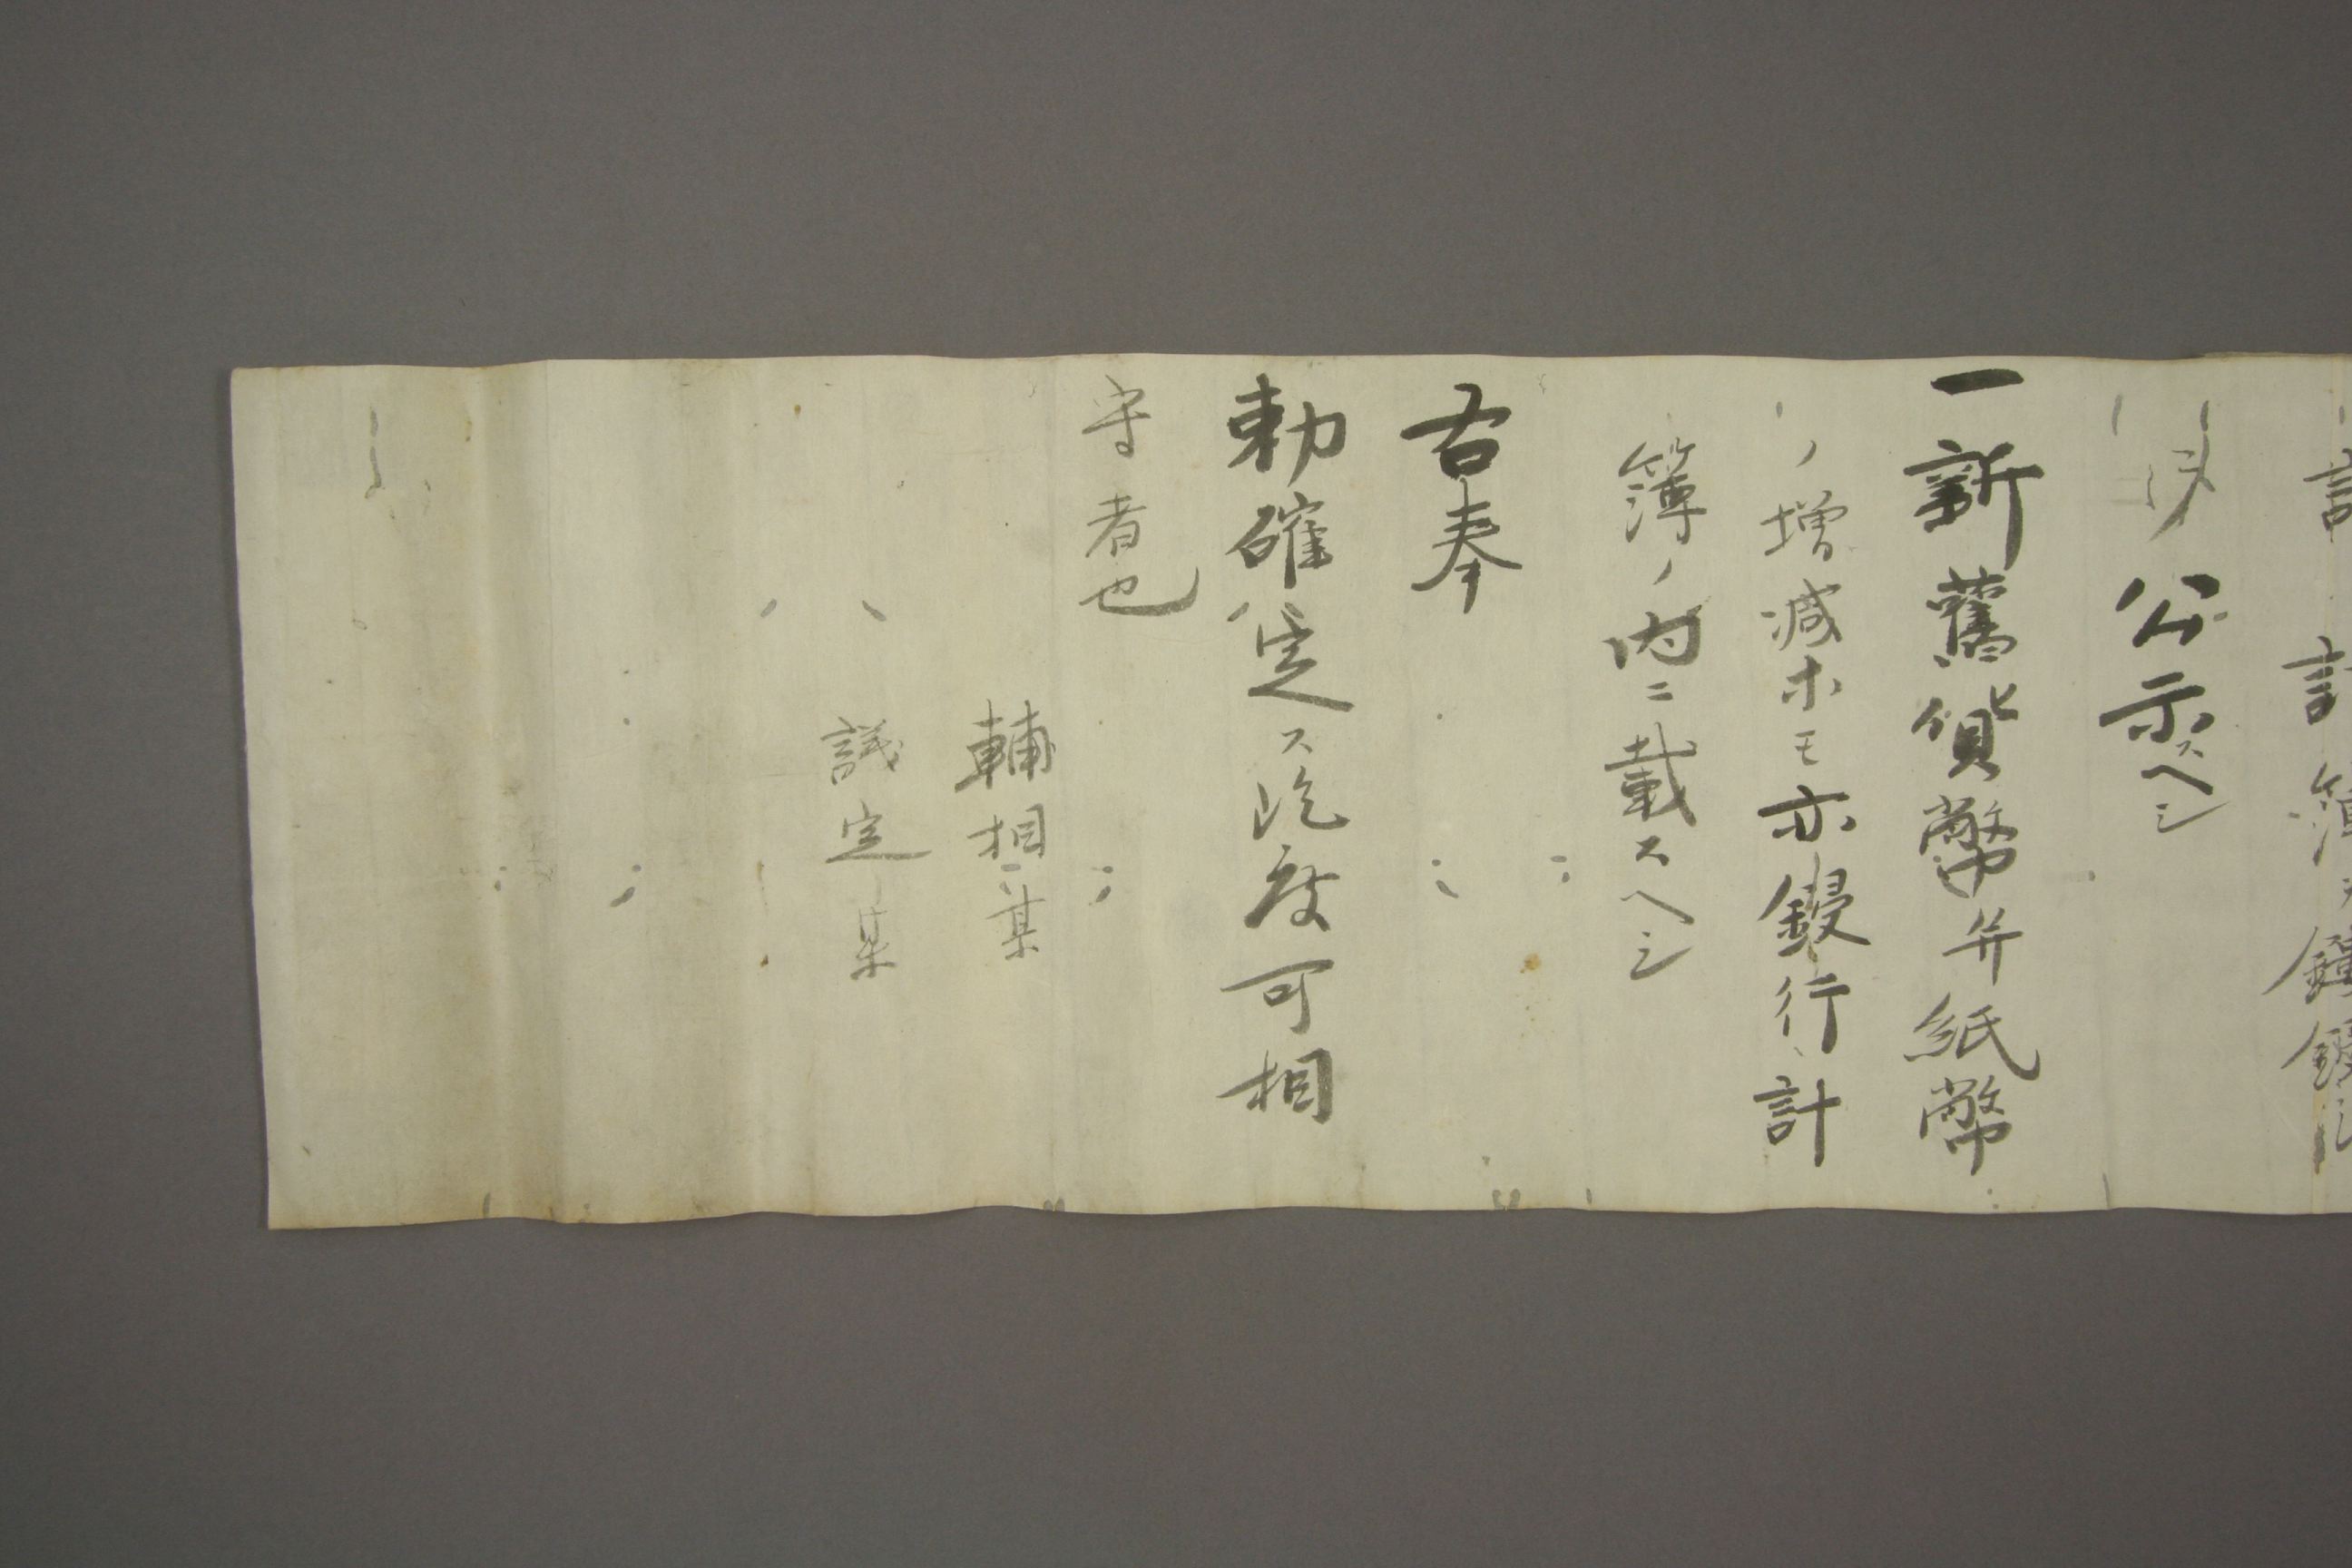 計簿ヲ鏤
公示スヘシ
一新舊貨幣并紙幣
ノ増減ホモ亦鏝行計
簿ノ内ニ載スヘシ
右奉
勅確定ス訖度可相
守者也
輔相某
議定某